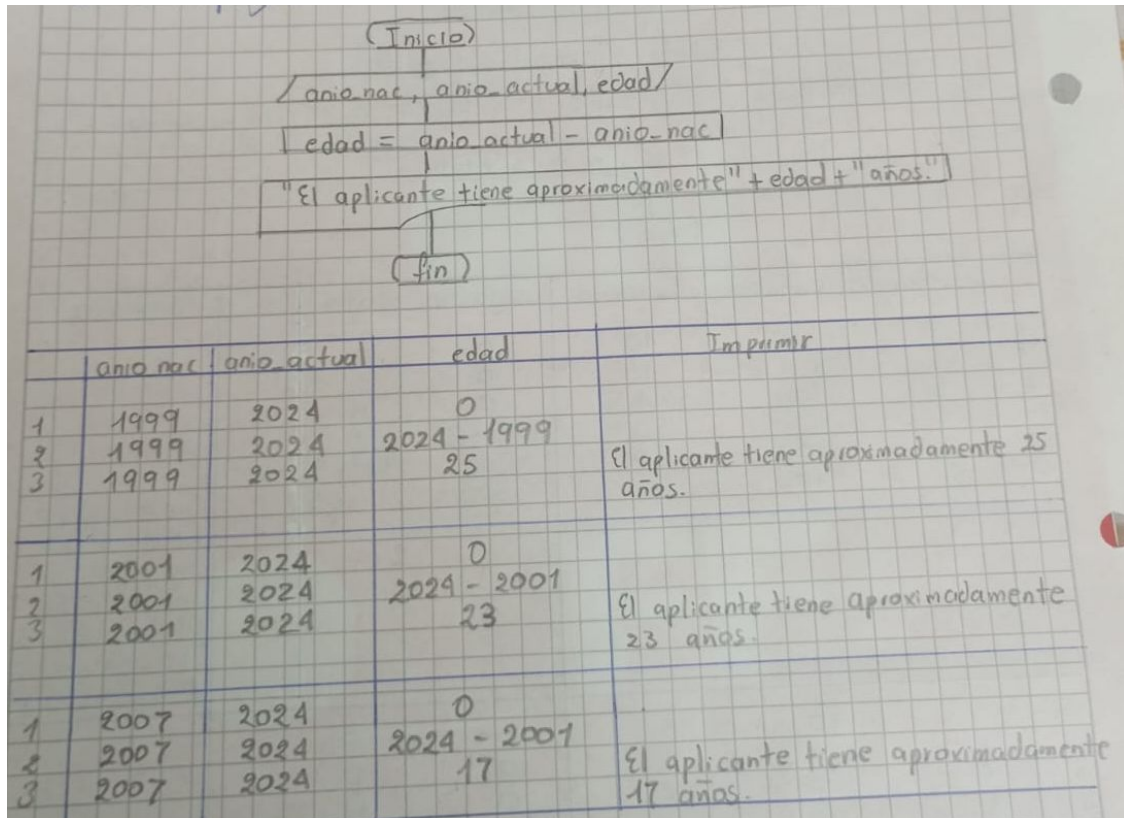 Inicio
anio_nac, anio_actual, edad
edad = anio_actual - anio_nac
"El aplicante tiene aproximadamente" + edad + "años."
fin
anio nac anio_actual edad Imprimir
1 1999 2024 0
2 1999 2024 2024 - 1999
3 1999 2024 25 El aplicante tiene aproximadamente 25
años.
1 2001 2024 0
2 2001 2024 2024 - 2001
3 2001 2024 23 El aplicante tiene aproximadamente
23 años.
1 2007 2024 0
2 2007 2024 2024 - 2001
3 2007 2024 17 El aplicante tiene aproximadamente
17 años.